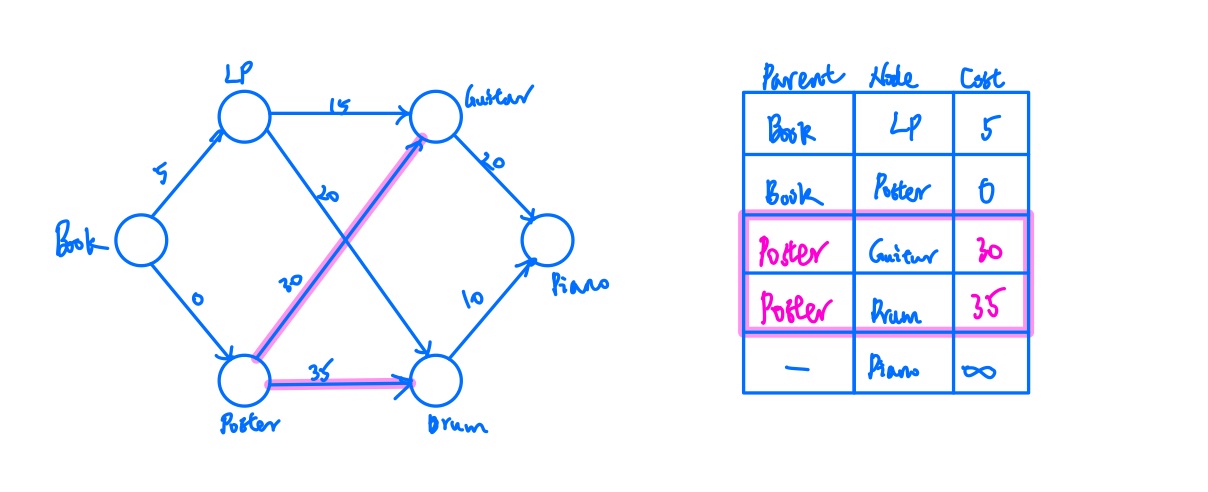 LP
15
Guitar
5
20
20
Book
30
0
10
Piano
35
Poster
Drum
Parent Node Cost
Book LP 5
Book Poster 0
Poster Guitar 30
Poster Drum 35
— Piano ∞